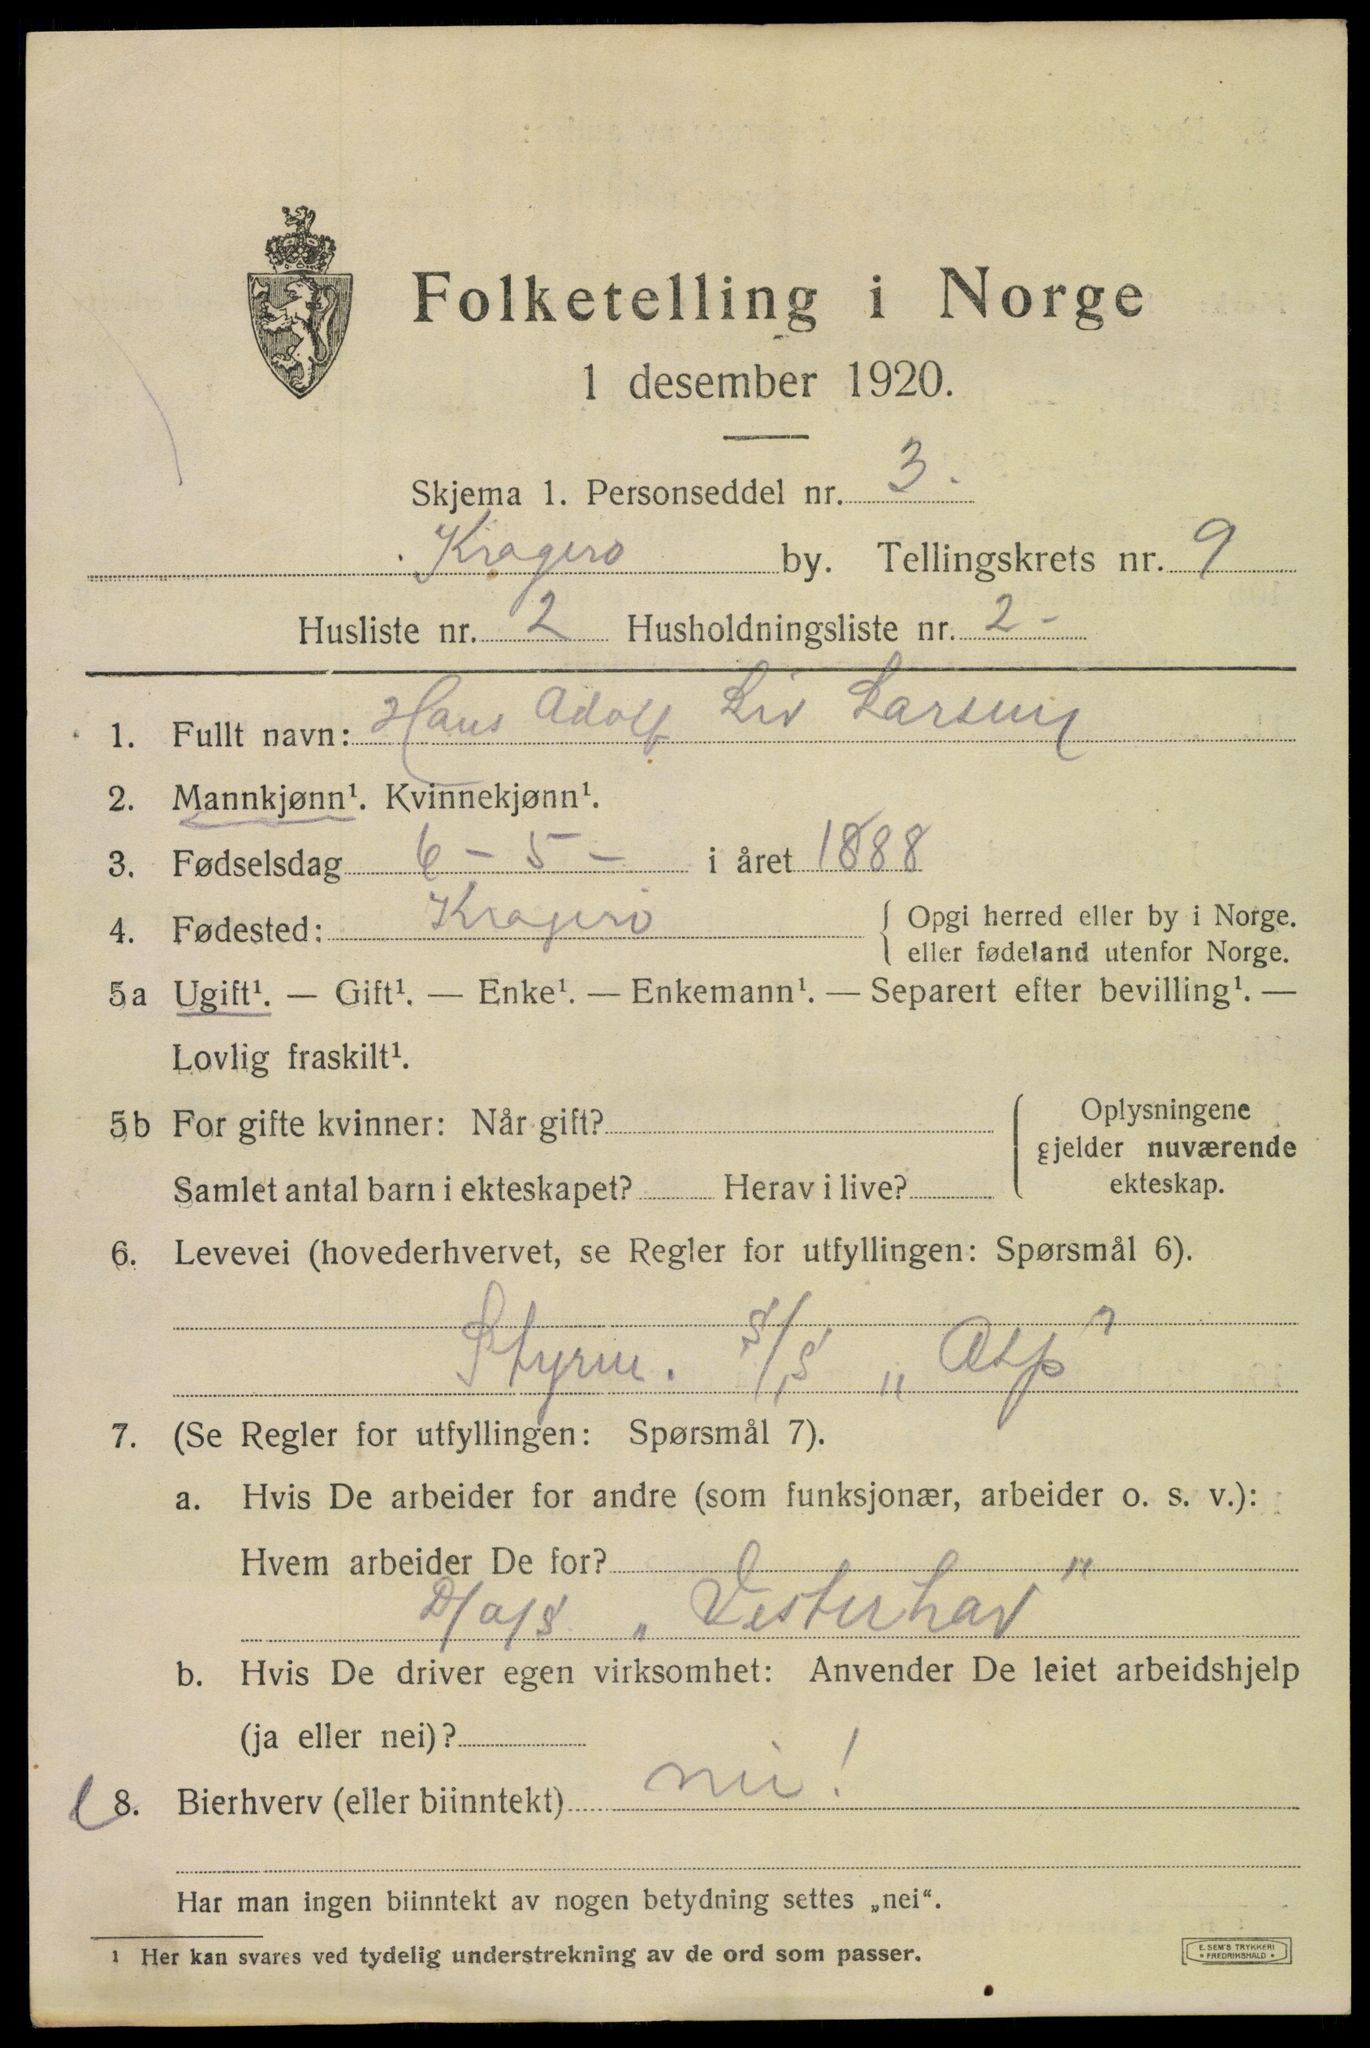 Folketelling i Norge
1 desember 1920.
Skjema 1. Personseddel nr. 3.
Kragerø by. Tellingskrets nr. 9
Husliste nr. 2 Husholdningsliste nr. 2-
1. Fullt navn: Hans Adolf Liv Larsen
2. Mannkjønn¹. Kvinnekjønn¹.
3. Fødselsdag 6 - 5 - i året 1888
4. Fødested: Kragerø { Opgi herred eller by i Norge.
eller fødeland utenfor Norge.
5a Ugift¹. — Gift¹. — Enke¹. — Enkemann¹. — Separert efter bevilling¹. —
Lovlig fraskilt¹.
5b For gifte kvinner: Når gift? Oplysningene
gjelder nuværende
Samlet antal barn i ekteskapet? Herav i live? ekteskap.
6. Levevei (hovederhvervet, se Regler for utfyllingen: Spørsmål 6).
Styrm. S/S „
7. (Se Regler for utfyllingen: Spørsmål 7).
a. Hvis De arbeider for andre (som funksjonær, arbeider o. s. v.):
Hvem arbeider De for?
D/a/s „Vesterhav"
b. Hvis De driver egen virksomhet: Anvender De leiet arbeidshjelp
(ja eller nei)?
8. Bierhverv (eller biinntekt) nei!
Har man ingen biinntekt av nogen betydning settes „nei“.
¹ Her kan svares ved tydelig understrekning av de ord som passer.
E. SEM'S TRYKKERI
• FREDRIKSHALD •